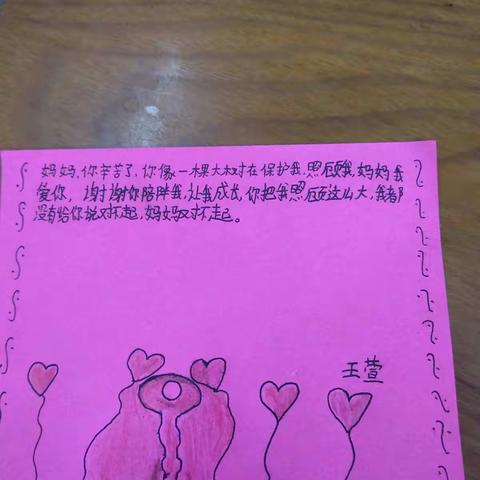 妈妈,你辛苦了,你像一棵大树在保护我.照顾我,妈妈我
爱你,谢谢你陪伴我,让我成长,你把我照顾这么大,我都
没有给你说对不起,妈妈对不起。
王萱